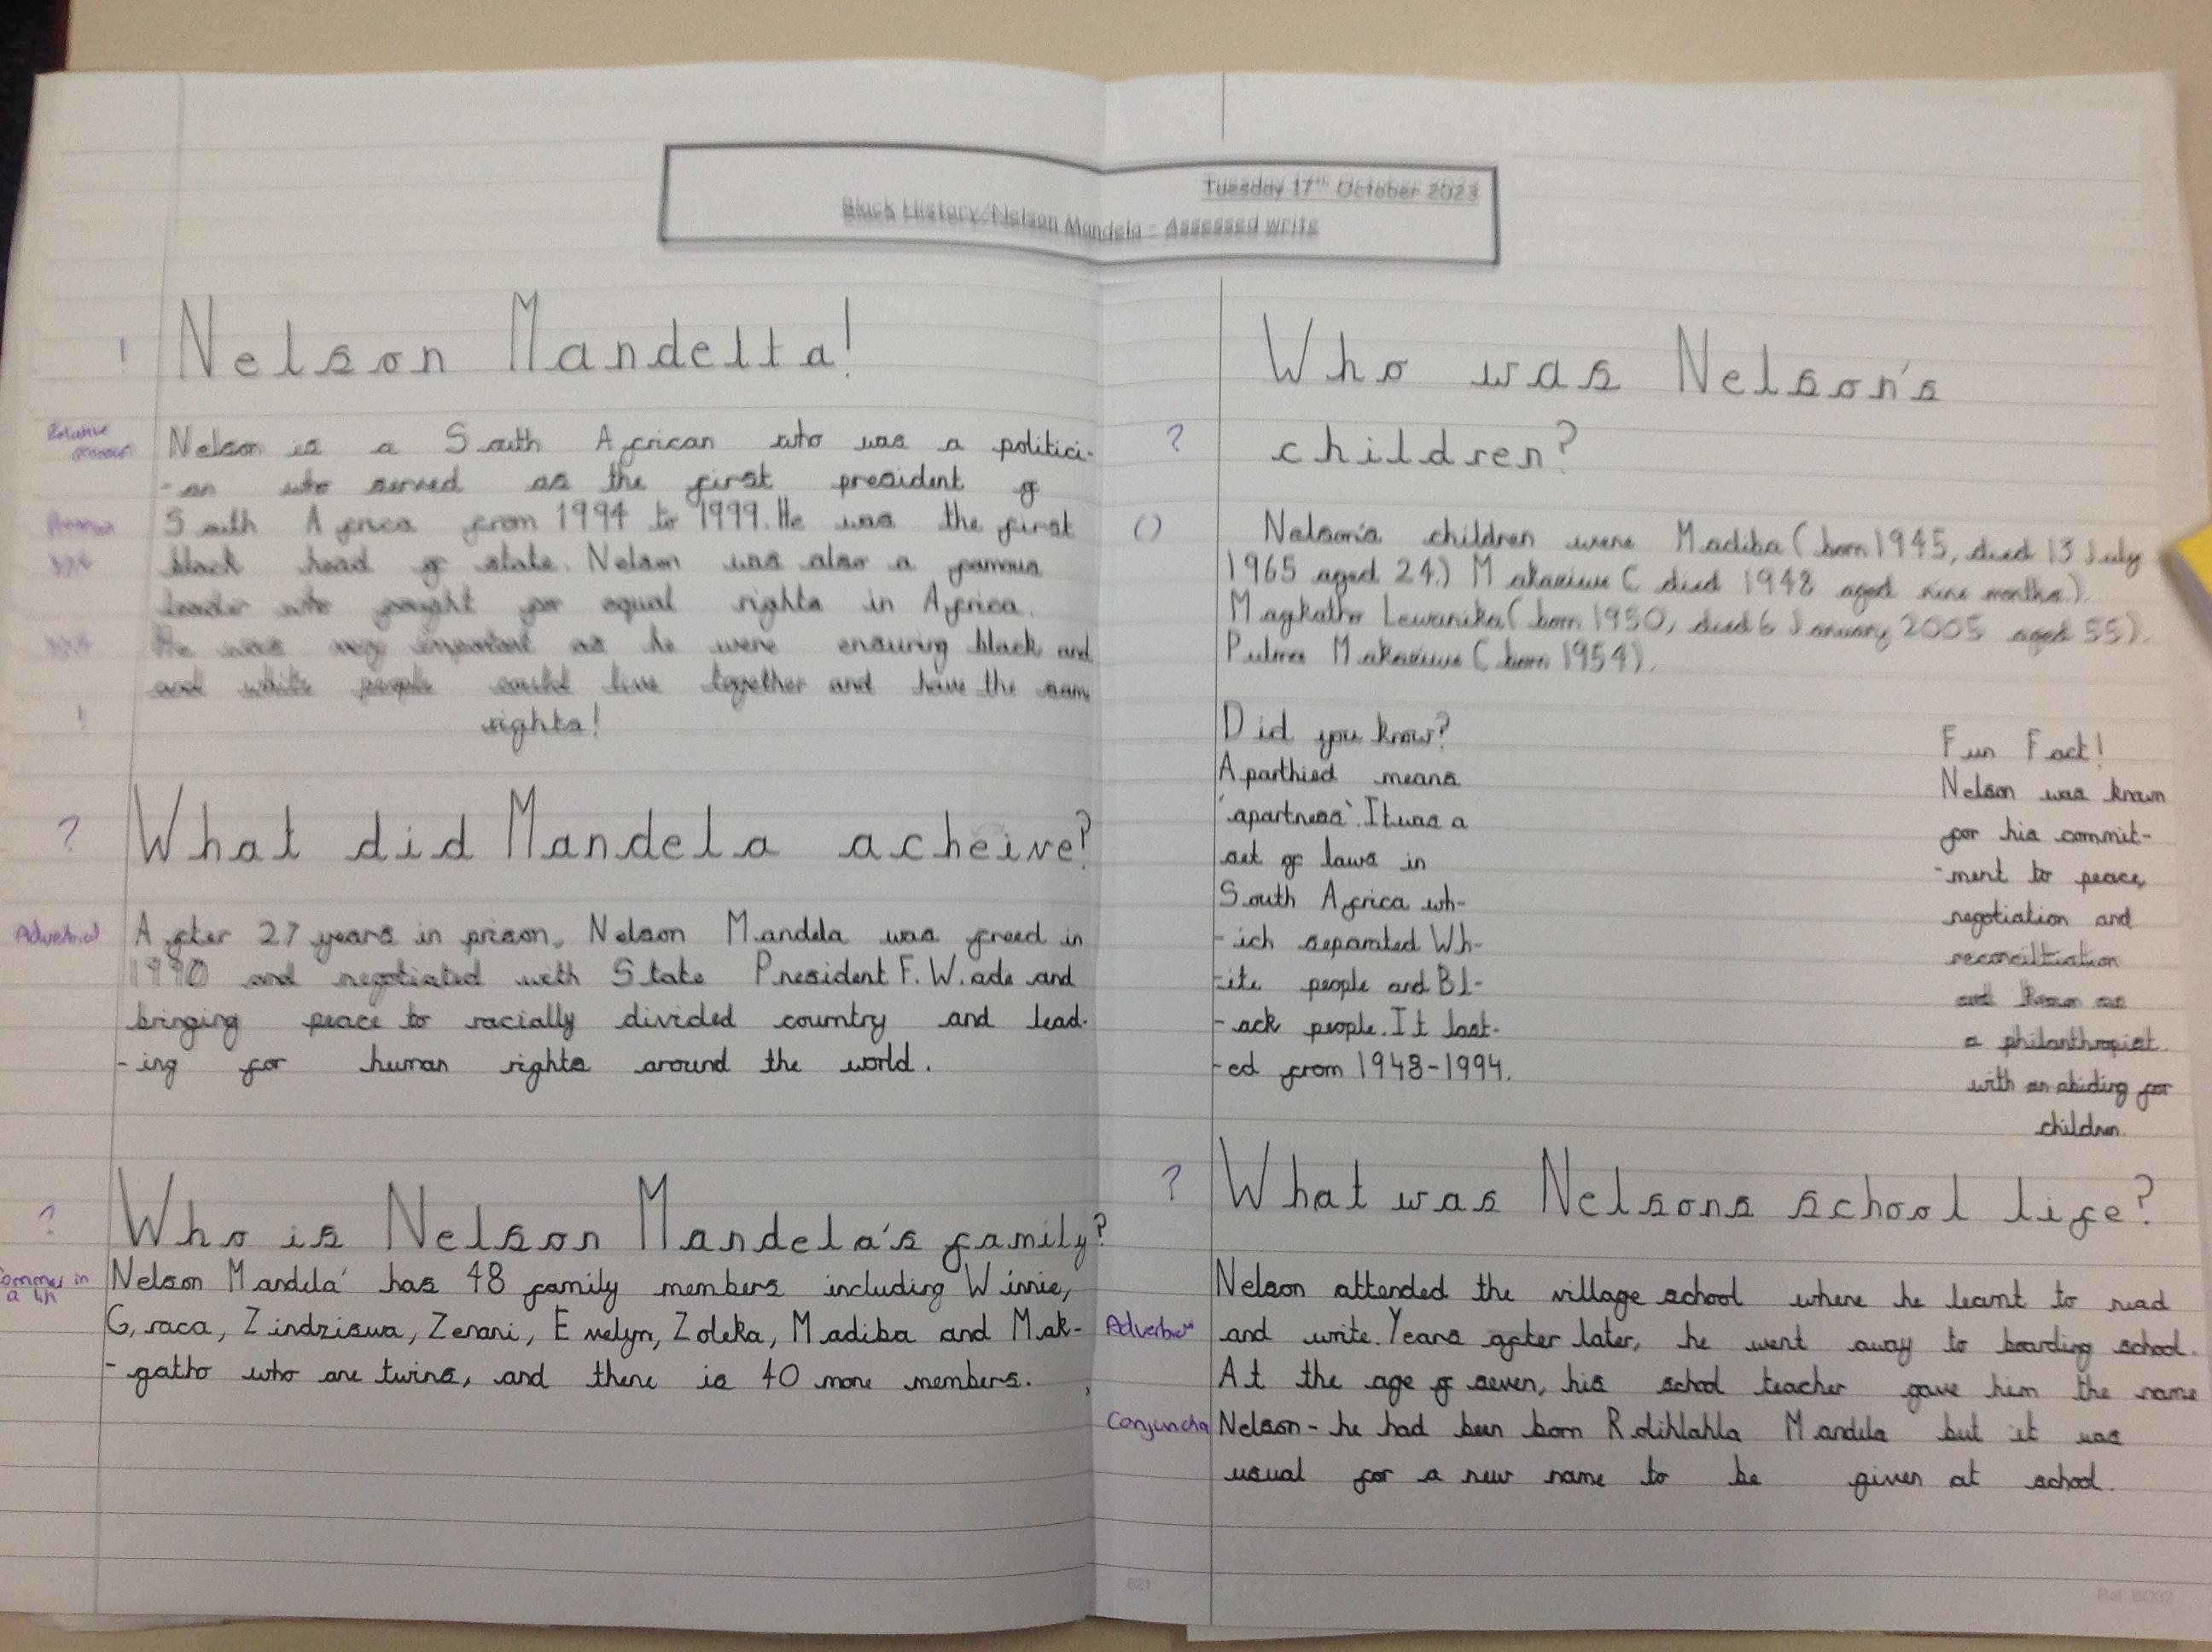 Tuesday 17th October 2023
Black History/Nelson Mandela - Assessed write
! Nelson Mandelta!
Relative
Nelson is a South African who was a politici-
-an who served as the first president of
South Africa from 1994 to 1999. He was the first
black head of state. Nelson was also a famous
leader who fought for equal rights in Africa.
He was very important as he were ensuring black and
and white people could live together and have the same
! rights!
? What did Mandela acheive?
Adverbial
After 27 years in prison, Nelson Mandela was freed in
1990 and negotiated with State President F. W. ade and
bringing peace to racially divided country and lead-
-ing for human rights around the world.
? Who is Nelson Mandela's family?
Commas in
a list
Nelson Mandela' has 48 family members including Winnie,
Graca, Zindziswa, Zenani, Evelyn, Zoleka, Madiba and Mak-
-gatho who are twins, and there is 40 more members.
Who was Nelson's
? children?
() Nelson's children were Madiba (born 1945, died 13 July
1965 aged 24.) Makaziwe (died 1948 aged nine months).
Magkatho Lewanika (born 1950, died 6 January 2005 aged 55).
Pulma Makaziwe (born 1954).
Did you know?
Aparthied means
'apartness'. It was a
set of laws in
South Africa wh-
-ich separated Wh-
-ite people and Bl-
-ack people. It last-
-ed from 1948-1994.
Fun Fact!
Nelson was known
for his commit-
-ment to peace,
negotiation and
reconciltiation
and
a philanthropist.
with an abiding for
children.
? What was Nelsons school life?
Nelson attended the village school where he learnt to read
Adverbial and write. Years after later, he went away to boarding school.
At the age of seven, his school teacher gave him the name
Conjunction Nelson - he had been born Rolihlahla Mandela but it was
usual for a new name to be given at school.
621
Ref: B032